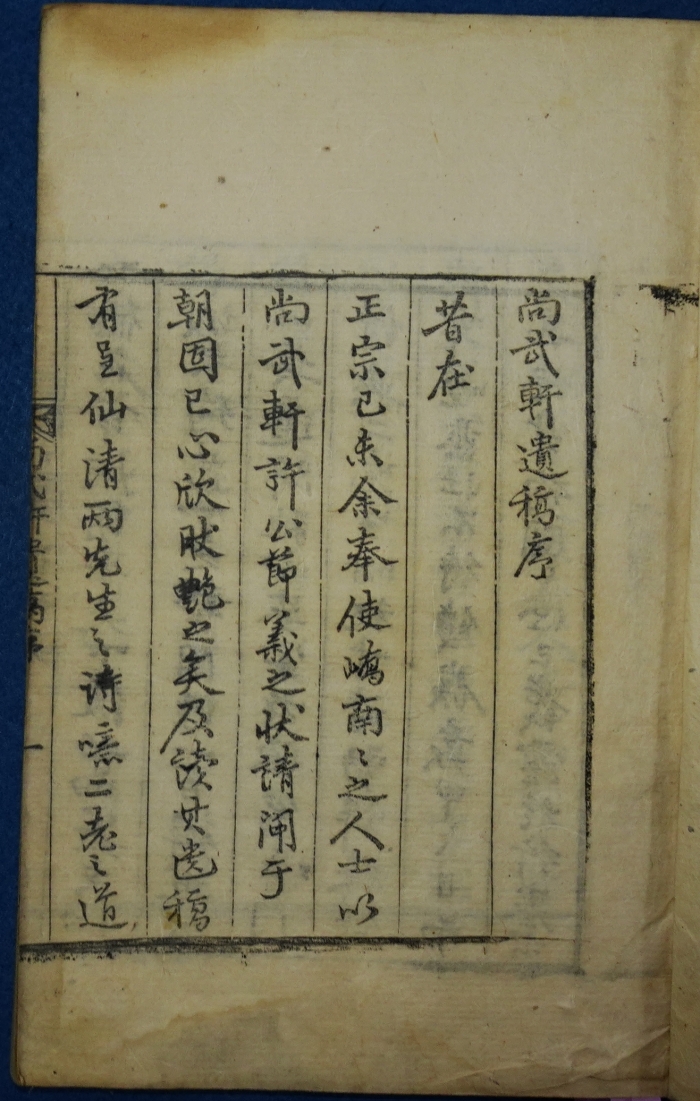 尚武軒遺稿序
昔在
正宗己未余奉使嶠南〻之人士以
尚武軒許公節義之狀請聞于
朝固已心欣肰艶之矣及讀其遺稿
有呈仙清兩先生之詩噫二老之道
尚武軒遺稿序 一